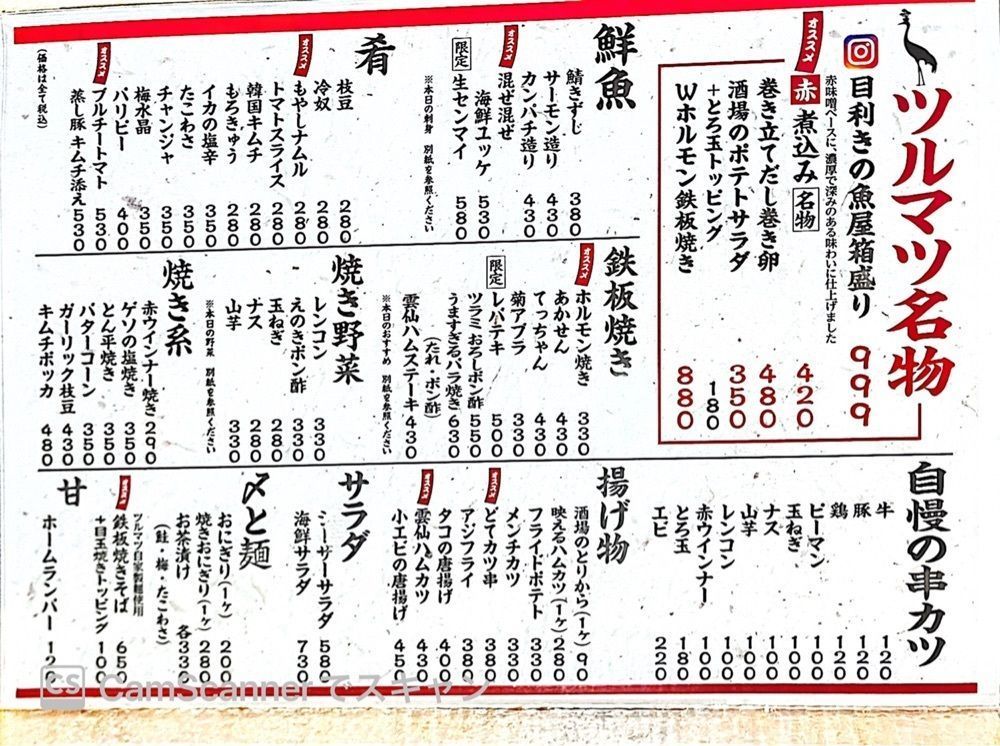 ツルマツ名物
目利きの魚屋箱盛り 999
赤味噌ベースに、濃厚で深みのある味わいに仕上げました
オススメ 赤 煮込み 名物 420
巻き立てだし巻き卵 480
酒場のポテトサラダ 350
+とろ玉トッピング 180
Wホルモン鉄板焼き 880
鮮魚
鯖きずし 380
サーモン造り 430
カンパチ造り 430
オススメ 混ぜ混ぜ
海鮮ユッケ 530
限定 生センマイ 580
※本日の刺身 別紙を参照ください
肴
枝豆 280
冷奴 280
オススメ もやしナムル 280
トマトスライス 280
韓国キムチ 280
もろきゅう 280
イカの塩辛 350
たこわさ 350
チャンジャ 350
梅水晶 350
パリピー 400
オススメ ブルチートマト 530
蒸し豚 キムチ添え 530
(価格は全て税込)
鉄板焼き
オススメ ホルモン焼き 330
あかせん 430
てっちゃん 430
菊アブラ 330
限定 レバテキ 500
ツラミ おろしポン酢 550
うますぎるバラ焼き 630
(たれ・ポン酢)
雲仙ハムステーキ 430
※本日のおすすめ 別紙を参照ください
焼き野菜
レンコン 330
えのきポン酢 330
玉ねぎ 280
ナス 280
山芋 330
※本日の野菜 別紙を参照ください
焼き系
赤ウインナー焼き 290
ゲソの塩焼き 350
とん平焼き 350
バターコーン 350
ガーリック枝豆 430
キムチポッカ 480
自慢の串カツ
牛 120
豚 120
鶏 120
ピーマン 100
玉ねぎ 100
ナス 100
山芋 100
レンコン 100
赤ウインナー 100
とろ玉 180
エビ 220
揚げ物
酒場のとりから(1ヶ) 90
映えるハムカツ(1ヶ) 280
フライドポテト 330
メンチカツ 330
オススメ どてカツ串 380
アジフライ 380
タコの唐揚げ 400
オススメ 雲仙ハムカツ 430
小エビの唐揚げ 450
サラダ
シーザーサラダ 580
海鮮サラダ 730
〆と麺
おにぎり(1ヶ) 200
焼きおにぎり(1ヶ) 280
お茶漬け 各330
(鮭・梅・たこわさ)
ツルマツ自家製麺使用
オススメ 鉄板焼きそば 650
+目玉焼きトッピング 100
甘
ホームランバー 120
CS CamScannerでスキャン